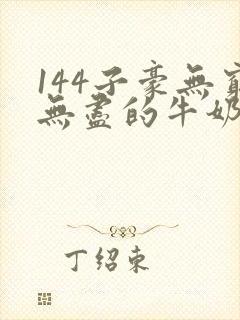 144子豪無窮
無盡的牛奶
丁绍東